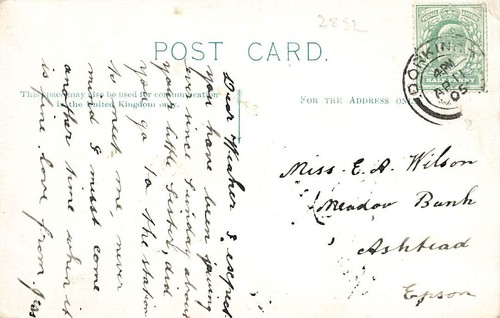 2852
POST CARD.
This space may also be used for communication
in the United Kingdom only.
FOR THE ADDRESS ON
DORKING
AP
05
Dear Heather I expect
you have been
ever since Sunday about
your little sister, did
you go to the station
to meet me, never
mind I must come
another time when it
is fine. love from
Miss. E. A. Wilson
Meadow Bank
Ashtead
Epsom